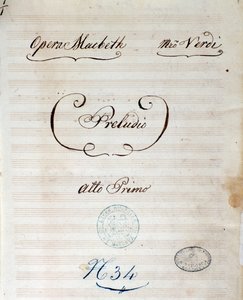 Opera Macbeth Mro Verdi
Preludio
Atto Primo
N 34